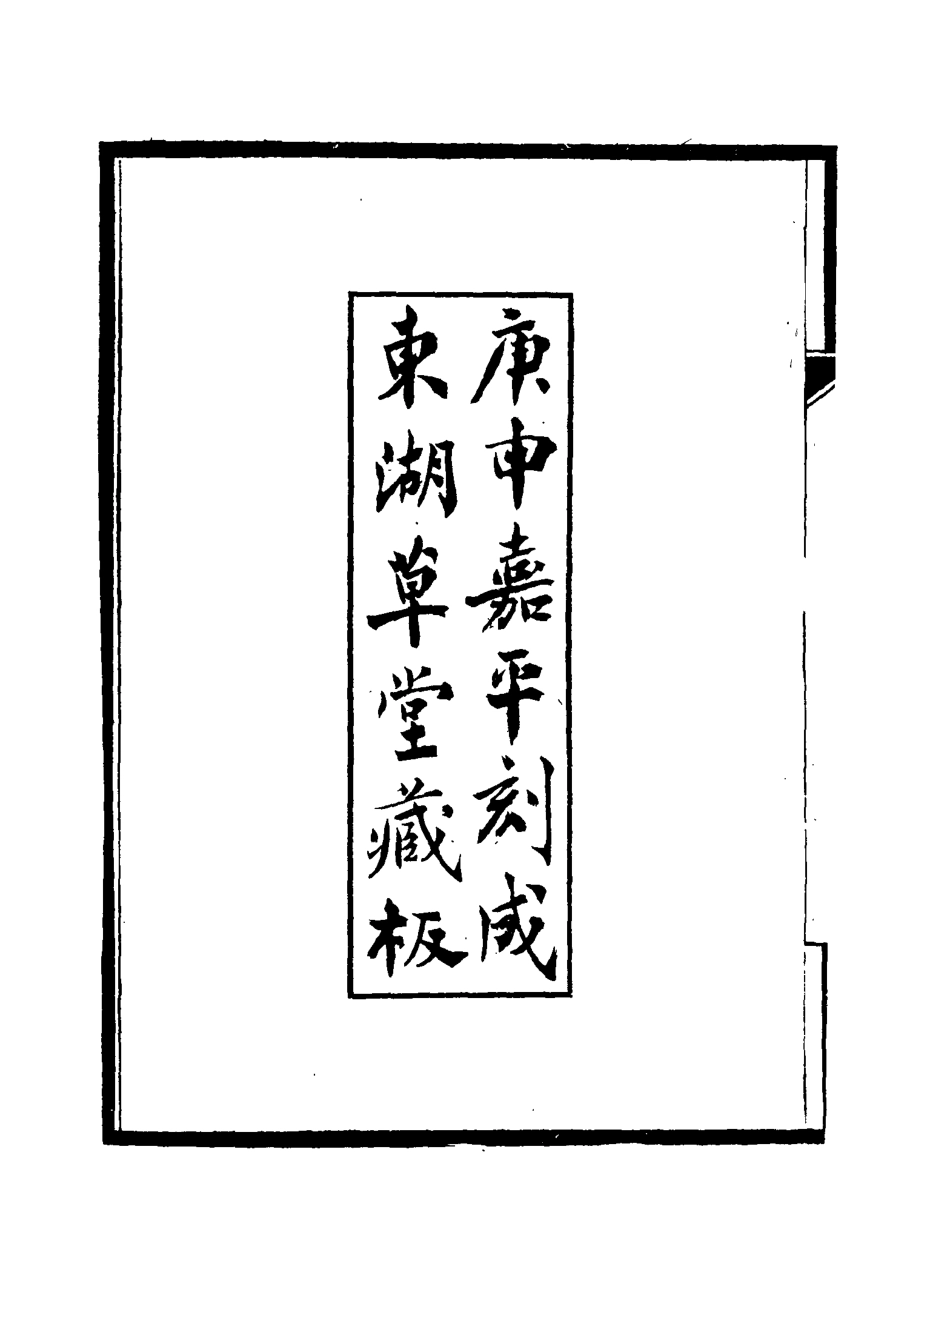 庚申嘉平刻成
東湖草堂藏板